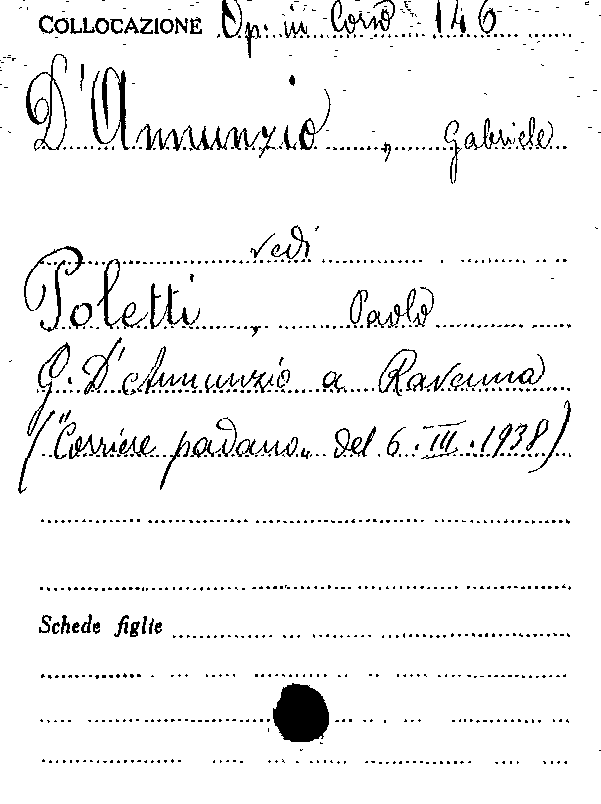 COLLOCAZIONE Op. in Corso 146
D'Annunzio, Gabriele
vedi
Poletti, Paolo
G. D'Annunzio a Ravenna
("Corriere padano" del 6.III.1938)
Schede figlie